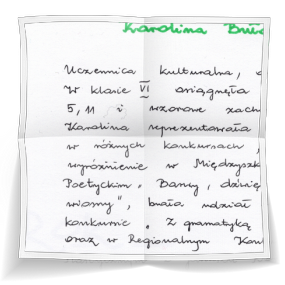 Karolina
Uczennica kulturalna,
W klasie VI osiągnęła
5,11 i wzorowe zach
Karolina reprezentowała
w różnych konkursach,
wyróżnienie w Międzyszk
Poetyckim „Barwy, dźwię
wiosny", brała udział
konkursie „Z gramatyką
oraz w Regionalnym Kon